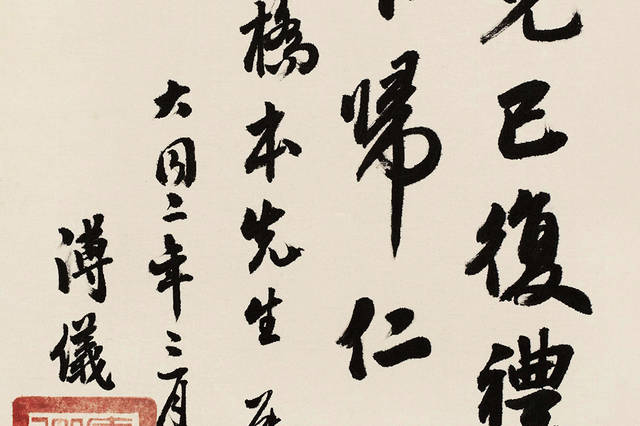 克己復禮
歸仁
橋本先生
大同二年三月
溥儀